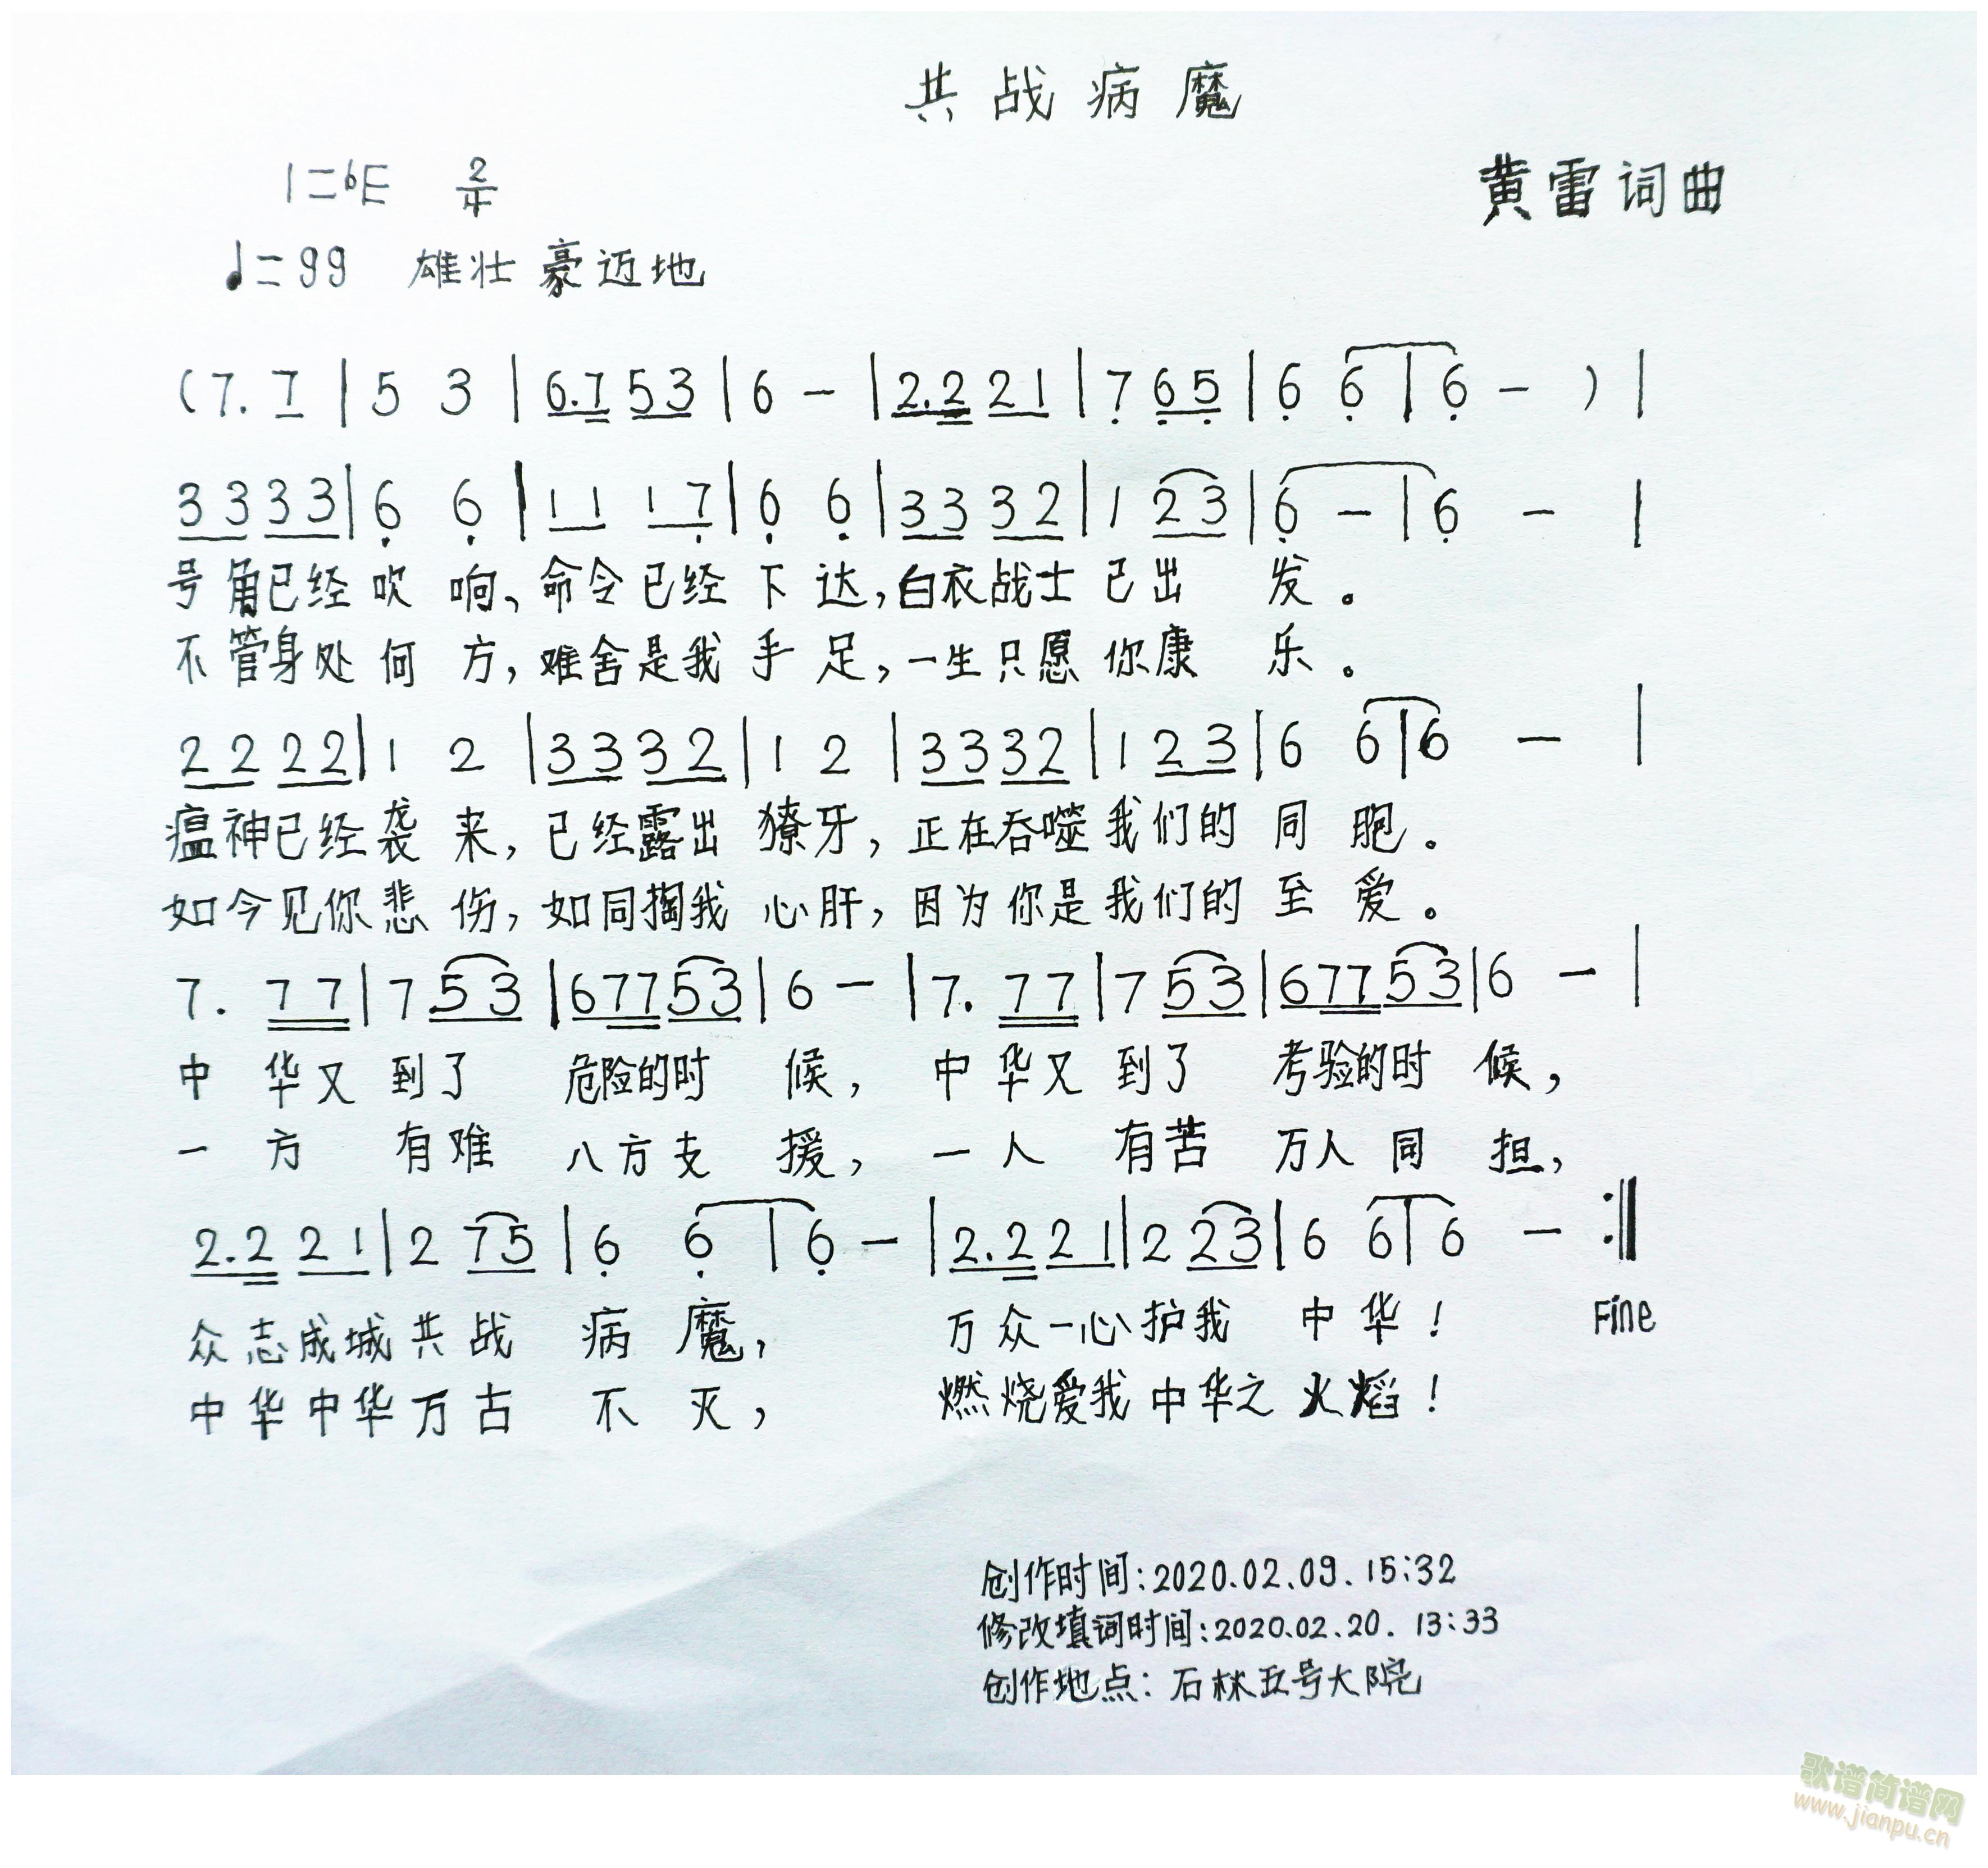 共战病魔
1=♭E 2/4
黄雷词曲
♩=99 雄壮豪迈地
(7. 7 | 5 3 | 6.7 53 | 6 - | 2.2 21 | 7 65 | 6 6 | 6 - ) |
33 33 | 6 6 | 11 17 | 6 6 | 33 32 | 1 23 | 6 - | 6 - |
号角已经吹响、命令已经下达,白衣战士已出发。
不管身处何方,难舍是我手足,一生只愿你康乐。
22 22 | 1 2 | 33 32 | 1 2 | 33 32 | 1 23 | 6 6 | 6 - |
瘟神已经袭来,已经露出獠牙,正在吞噬我们的同胞。
如今见你悲伤,如同掏我心肝,因为你是我们的至爱。
7. 77 | 7 53 | 677 53 | 6 - | 7. 77 | 7 53 | 677 53 | 6 - |
中华又到了危险的时候,中华又到了考验的时候,
一方有难八方支援,一人有苦万人同担,
2.2 21 | 2 75 | 6 6 | 6 - | 2.2 21 | 2 23 | 6 6 | 6 - :‖
众志成城共战病魔,万众一心护我中华! Fine
中华中华万古不灭,燃烧爱我中华之火焰!
创作时间:2020.02.09.15:32
修改填词时间:2020.02.20.13:33
创作地点:石林五号大院
歌谱简谱网
www.jianpu.cn